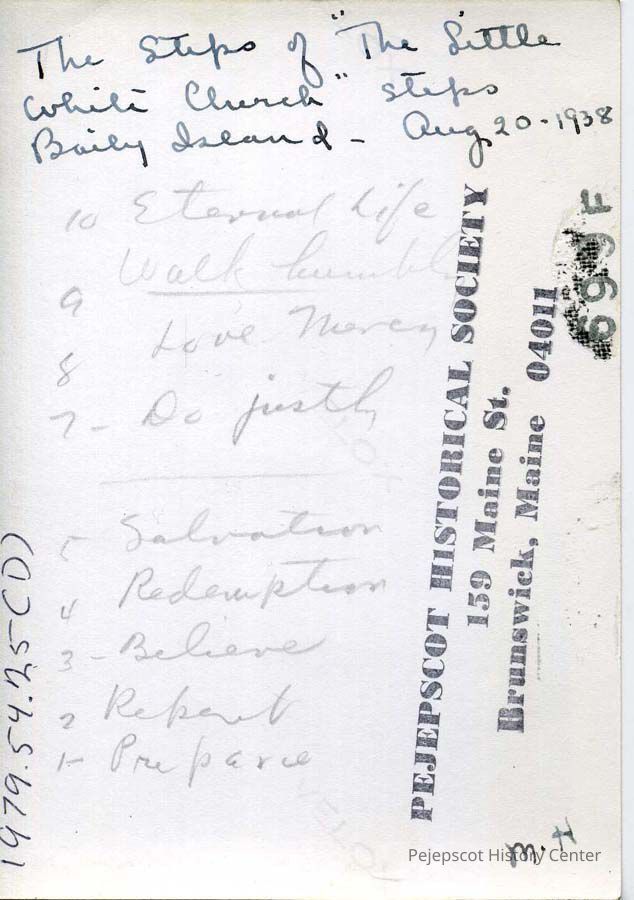 The Steps of "The Little
White Church" steps
Baily Island - Aug 20-1938
10 Eternal Life
9 Walk humbly
8 Love Mercy
7- Do justly
5 Salvation
4 Redemption
3 - Believe
2 Repent
1- Prepare
PEJEPSCOT HISTORICAL SOCIETY
159 Maine St.
Brunswick, Maine 04011
699F
1979.54.25(D)
M.H
Pejepscot History Center